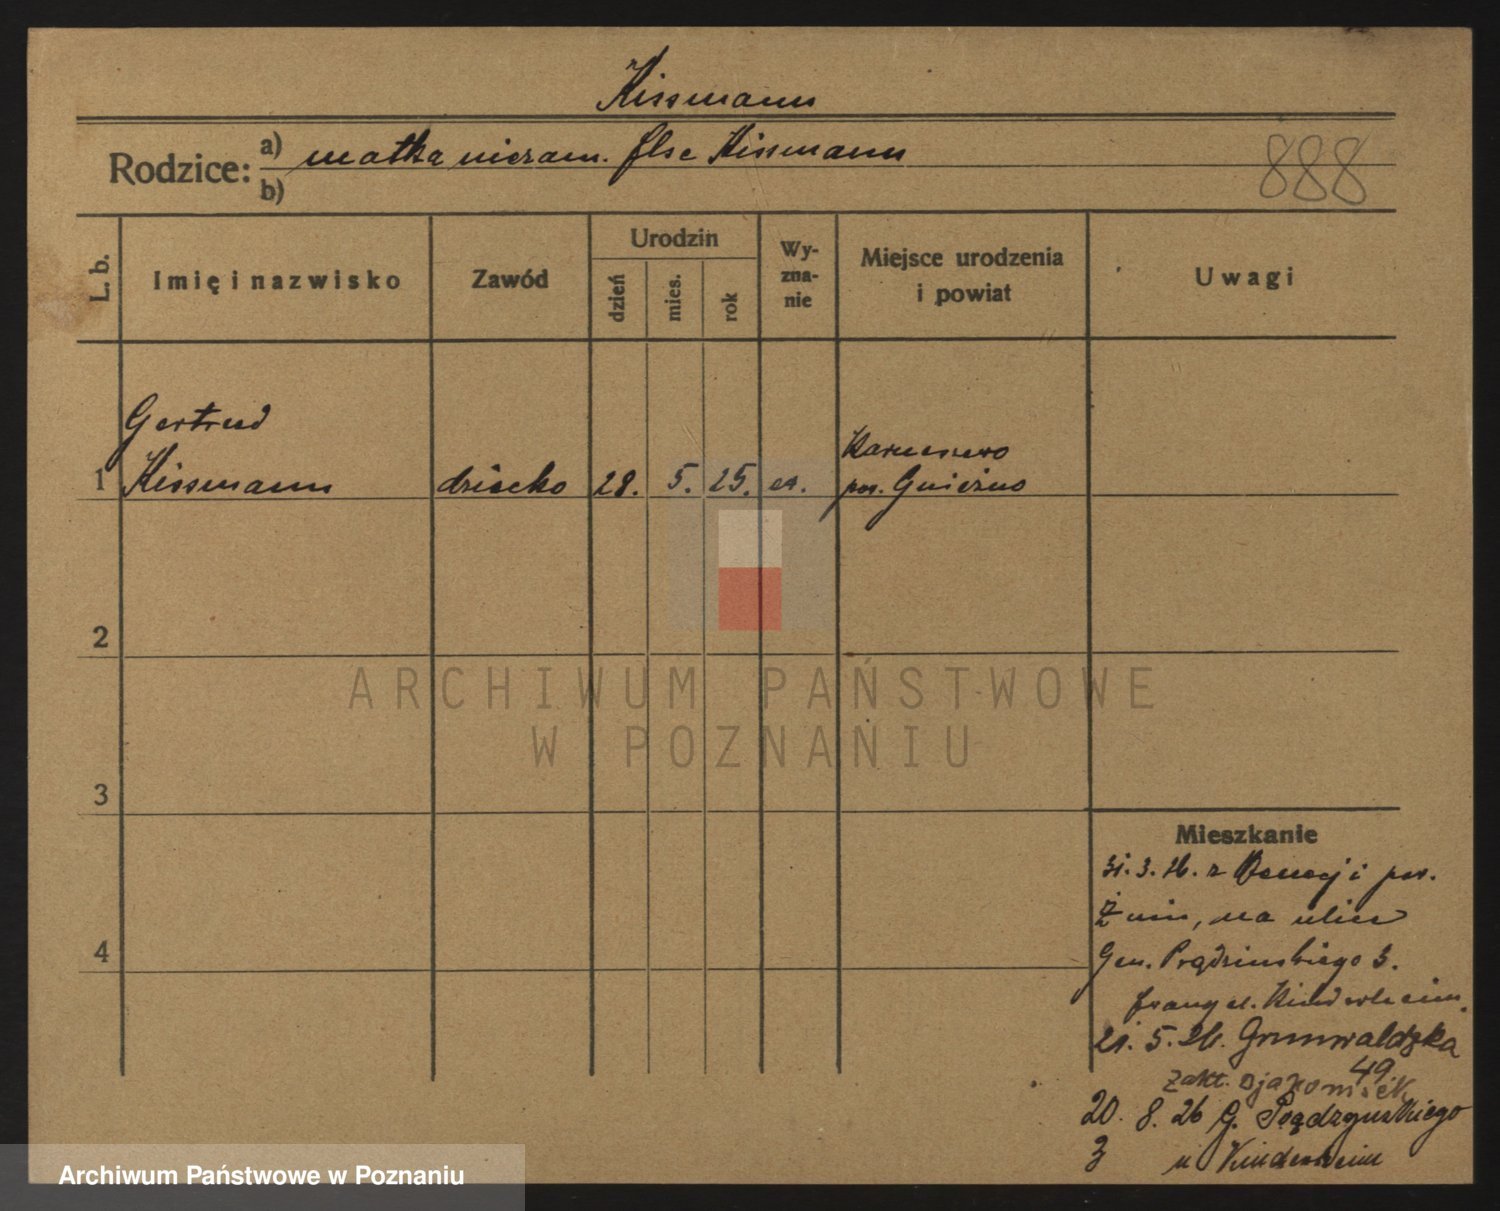 Kissmann
Rodzice: a) matka niezam. Else Kissmann
b)
888
L. b.
Imię i nazwisko
Zawód
Urodzin
dzień
mies.
rok
Wy-
zna-
nie
Miejsce urodzenia
i powiat
Uwagi
Gertrud
1 Kissmann dziecko 28. 5. 25. ew.
pow. Gniezno
2
3
4
Mieszkanie
31. 3. 26. z pow.
Żnin, na ulicę
Gen. Prądzinskiego 3.
Evangel. Kinderheim.
21. 5. 26. Grunwaldzka
49
Zakł. Djakonisek
20. 8. 26 G. Prądzynskiego
3 u Kinderheim
ARCHIWUM PAŃSTWOWE
W POZNANIU
Archiwum Państwowe w Poznaniu